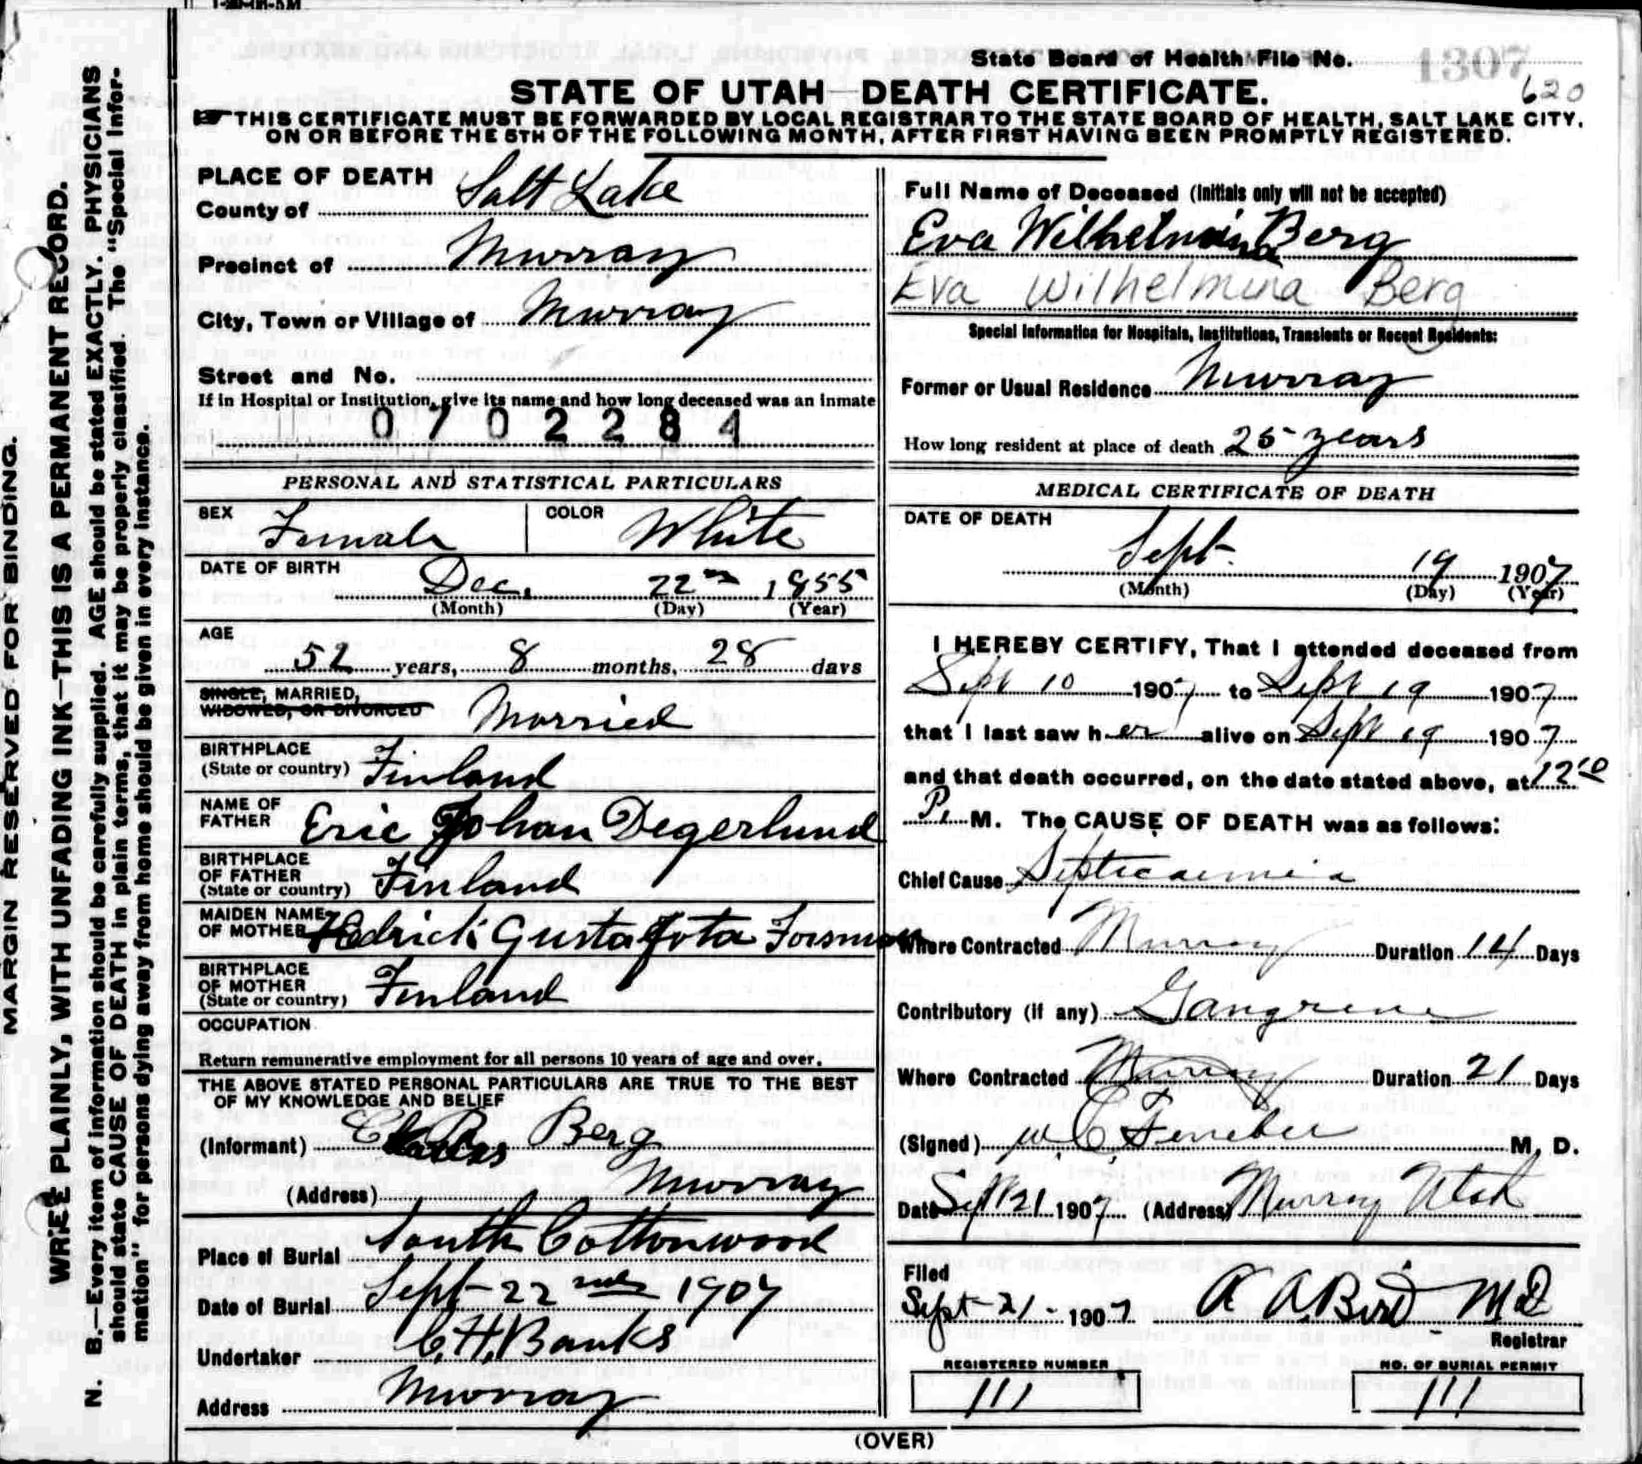 1307
State Board of Health File No.
STATE OF UTAH—DEATH CERTIFICATE.
620
THIS CERTIFICATE MUST BE FORWARDED BY LOCAL REGISTRAR TO THE STATE BOARD OF HEALTH, SALT LAKE CITY,
ON OR BEFORE THE 5TH OF THE FOLLOWING MONTH, AFTER FIRST HAVING BEEN PROMPTLY REGISTERED.
MARGIN RESERVED FOR BINDING.
WRITE PLAINLY, WITH UNFADING INK—THIS IS A PERMANENT RECORD.
N. B.—Every item of information should be carefully supplied. AGE should be stated EXACTLY. PHYSICIANS
should state CAUSE OF DEATH in plain terms, that it may be properly classified. The "Special Infor-
mation" for persons dying away from home should be given in every instance.
PLACE OF DEATH
County of Salt Lake
Precinct of Murray
City, Town or Village of Murray
Street and No.
If in Hospital or Institution, give its name and how long deceased was an inmate
0702284
PERSONAL AND STATISTICAL PARTICULARS
SEX Female COLOR White
DATE OF BIRTH
Dec. 22nd 1855
(Month) (Day) (Year)
AGE
52 years, 8 months, 28 days
SINGLE, MARRIED,
WIDOWED, OR DIVORCED Married
BIRTHPLACE
(State or country) Finland
NAME OF
FATHER Eric Johan Degerlund
BIRTHPLACE
OF FATHER
(State or country) Finland
MAIDEN NAME
OF MOTHER Gusta
BIRTHPLACE
OF MOTHER
(State or country) Finland
OCCUPATION
Return remunerative employment for all persons 10 years of age and over.
THE ABOVE STATED PERSONAL PARTICULARS ARE TRUE TO THE BEST
OF MY KNOWLEDGE AND BELIEF
(Informant) Berg
(Address) Murray
Place of Burial South Cottonwood
Date of Burial Sept-22nd 1907
Undertaker C. H. Banks
Address Murray
Full Name of Deceased (Initials only will not be accepted)
Eva Wilhelmina Berg
Eva Wilhelmina Berg
Special Information for Hospitals, Institutions, Transients or Recent Residents:
Former or Usual Residence Murray
How long resident at place of death 25 years
MEDICAL CERTIFICATE OF DEATH
DATE OF DEATH
Sept. 19 1907
(Month) (Day) (Year)
I HEREBY CERTIFY, That I attended deceased from
Sept 10 1907 to Sept 19 1907
that I last saw her alive on Sept 19 1907
and that death occurred, on the date stated above, at 12
P. M. The CAUSE OF DEATH was as follows:
Chief Cause Septicaemia
Where Contracted Murray Duration 14 Days
Contributory (if any) Gangrene
Where Contracted Murray Duration 21 Days
(Signed) M. D.
Date Sept 21 1907 (Address) Murray Utah
Filed
Sept-21-1907 A. A. Bird M D
Registrar
REGISTERED NUMBER
111
NO. OF BURIAL PERMIT
111
(OVER)